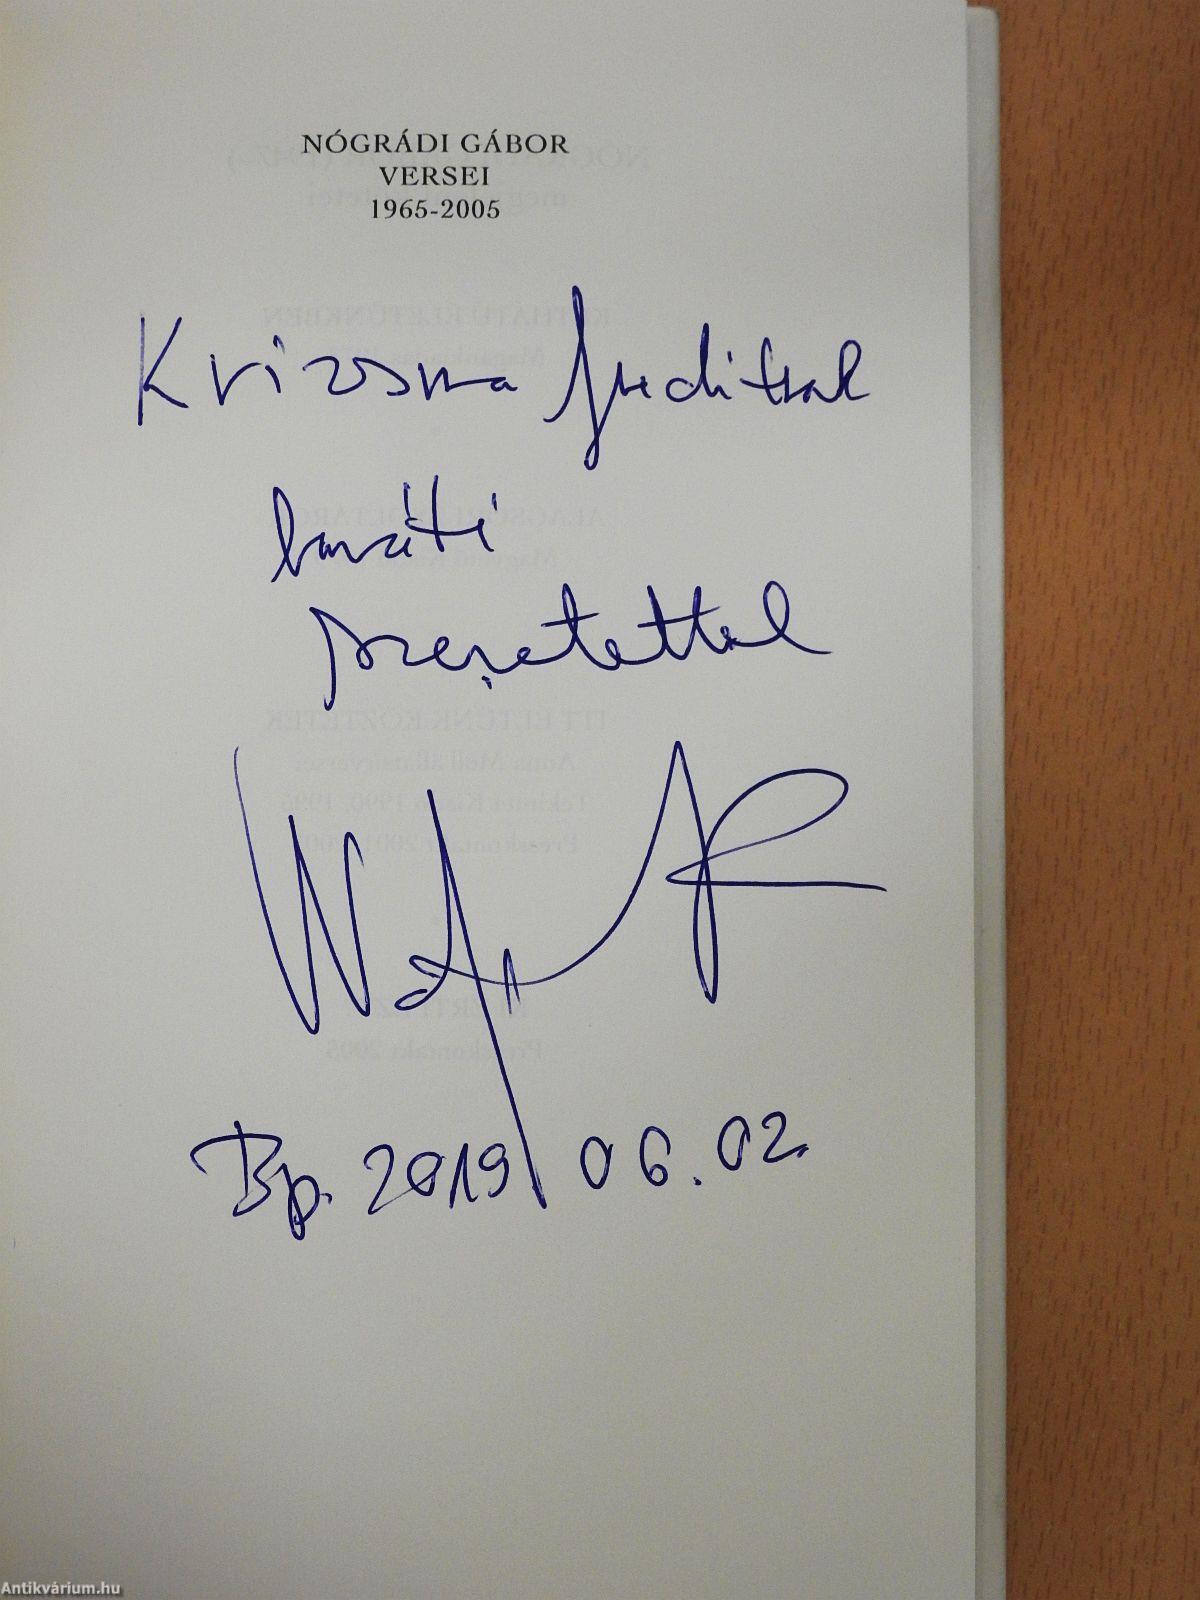 NÓGRÁDI GÁBOR
VERSEI
1965-2005
Krizsma Juditnak
baráti
szeretettel
Bp. 2019 06.02.
Antikvárium.hu